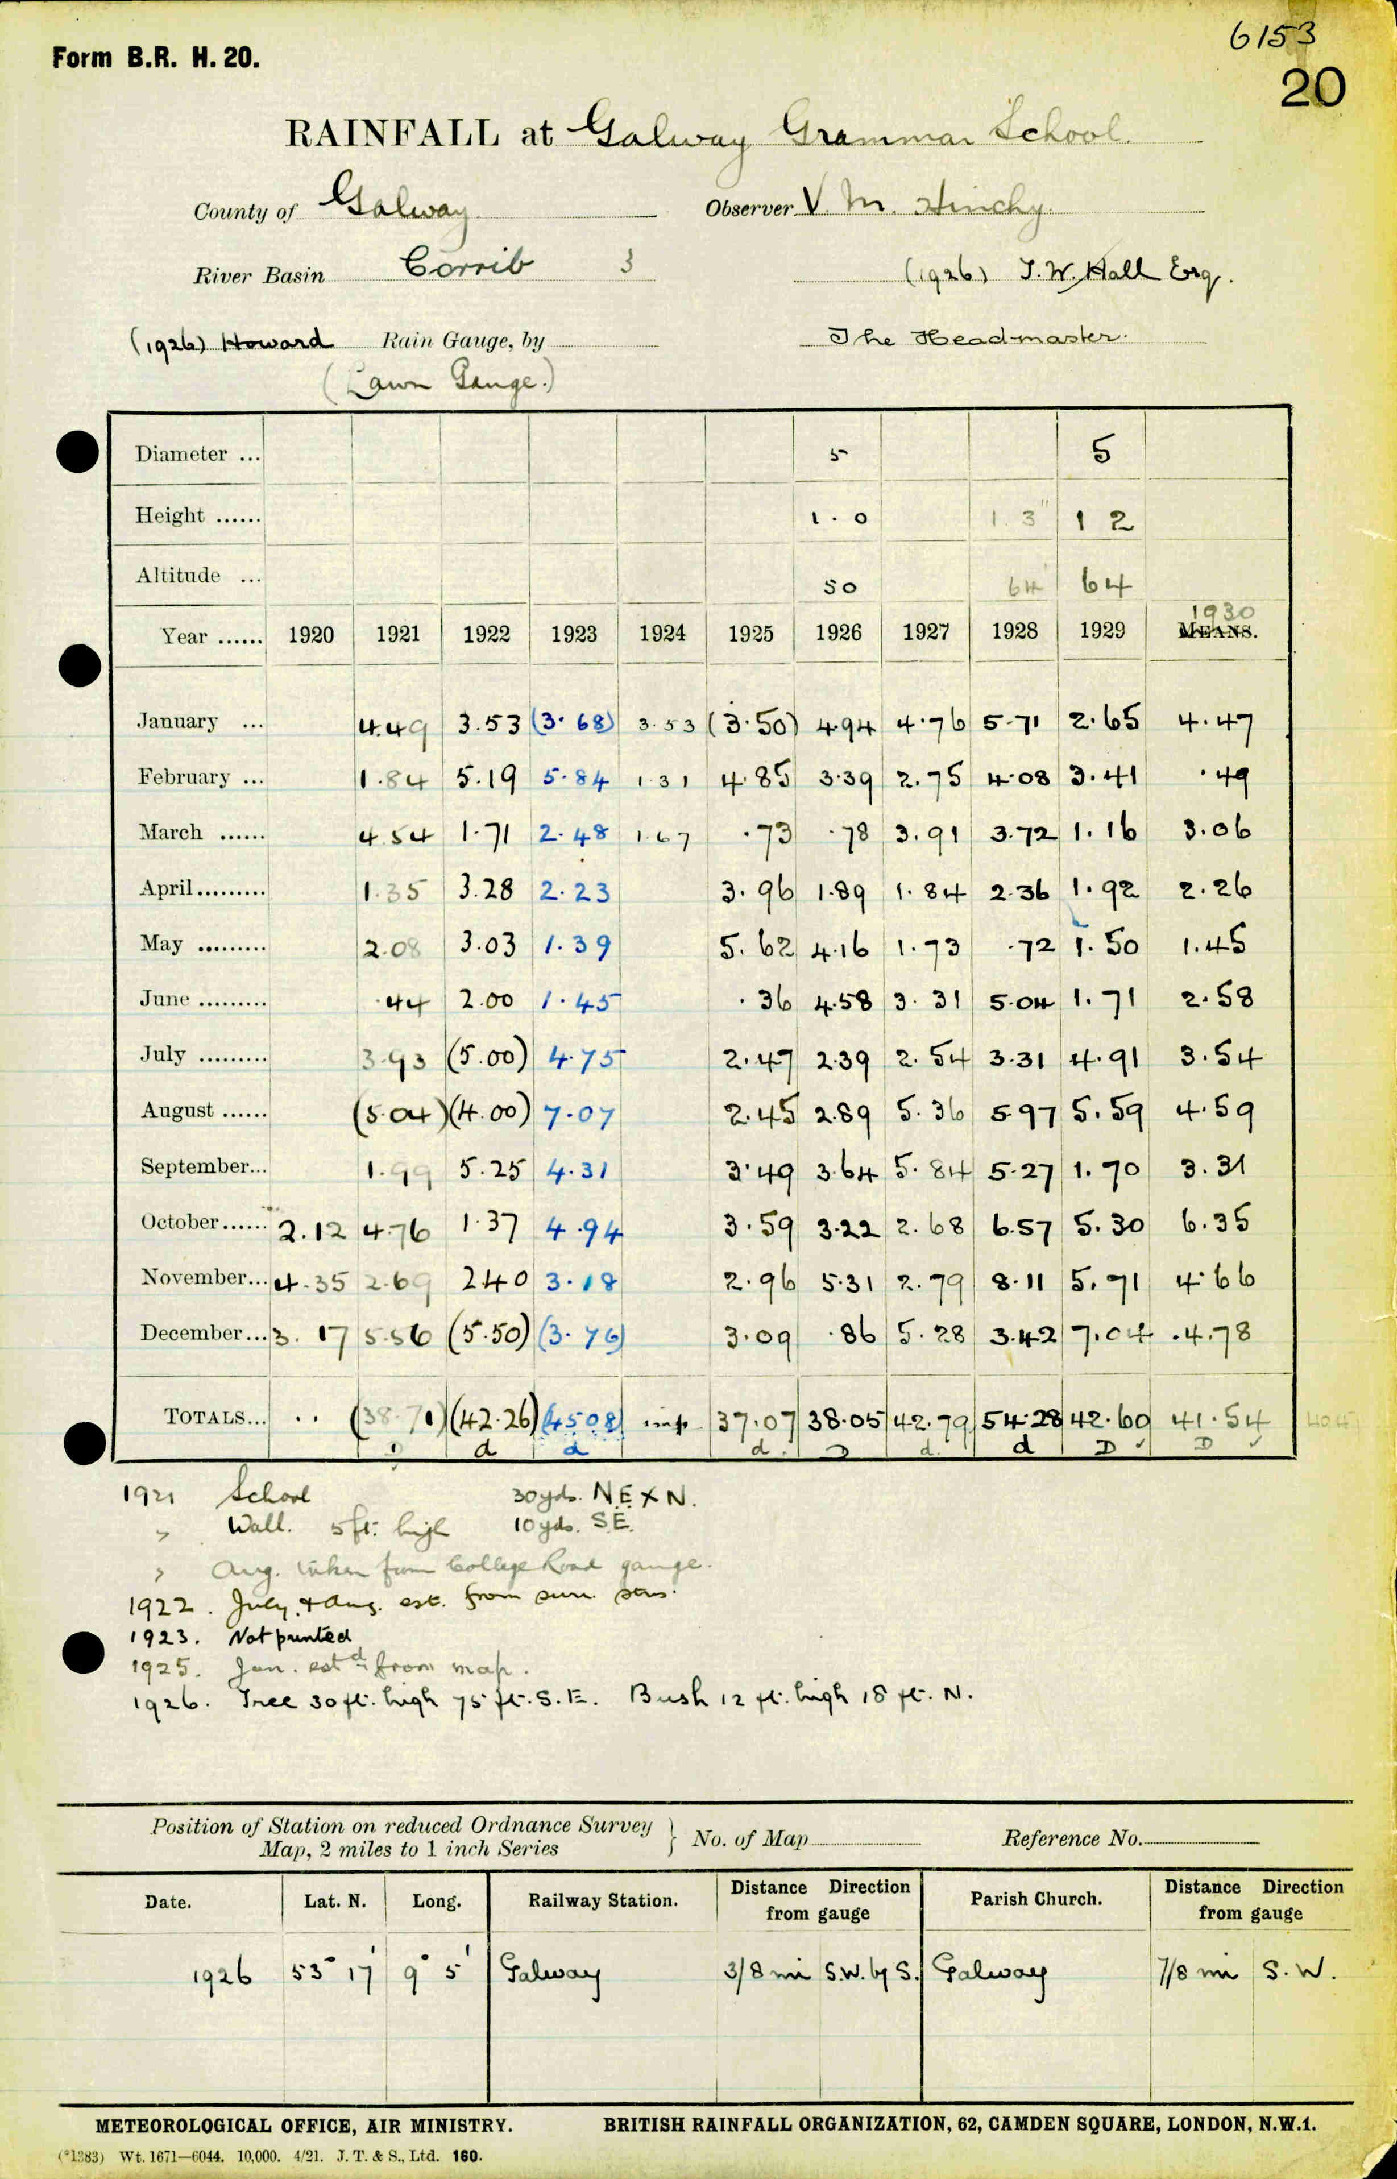 6153
Form B.R. H. 20.
20
RAINFALL at Galway Grammar School.
County of Galway Observer V. M. Hinchy.
River Basin Corrib 3 (1926) T. W. Hall Esq.
(1926) Howard Rain Gauge, by The Headmaster.
(Lawn Gauge.)
Diameter ... 5 5
Height ...... 1 . 0 1. 3" 1 2
Altitude ... 50 64' 64
1930
Year ...... 1920 1921 1922 1923 1924 1925 1926 1927 1928 1929 MEANS.
January ... 4.49 3.53 (3.68) 3.53 (3.50) 4.94 4.76 5.71 2.65 4.47
February ... 1.84 5.19 5.84 1.31 4.85 3.39 2.75 4.08 3.41 .49
March ...... 4.54 1.71 2.48 1.67 .73 .78 3.91 3.72 1.16 3.06
April......... 1.35 3.28 2.23 3.96 1.89 1.84 2.36 1.92 2.26
May ......... 2.08 3.03 1.39 5.62 4.16 1.73 .72 1.50 1.45
June ......... .44 2.00 1.45 .36 4.58 3.31 5.04 1.71 2.58
July ......... 3.93 (5.00) 4.75 2.47 2.39 2.54 3.31 4.91 3.54
August ...... (5.04) (4.00) 7.07 2.45 2.89 5.36 5.97 5.59 4.59
September... 1.99 5.25 4.31 3.49 3.64 5.84 5.27 1.70 3.31
October...... 2.12 4.76 1.37 4.94 3.59 3.22 2.68 6.57 5.30 6.35
November... 4.35 2.69 2.40 3.18 2.96 5.31 2.79 8.11 5.71 4.66
December... 3.17 5.56 (5.50) (3.76) 3.09 .86 5.28 3.42 7.04 .4.78
TOTALS... .. (38.71) (42.26) (45.08) imp. 37.07 38.05 42.79 54.28 42.60 41.54
D d d d. D d. d D ✓ D ✓
1921 School 30 yds. N.E x N.
" Wall. 5 ft. high 10 yds. S.E.
" Aug. taken from College Road gauge.
1922. July, & Aug. est. from surr. stns.
1923. Not printed
1925. Jan. estd from map.
1926. Tree 30 ft. high 75 ft. S.E. Bush 12 ft. high 18 ft. N.
Position of Station on reduced Ordnance Survey Map, 2 miles to 1 inch Series } No. of Map Reference No.
Date. Lat. N. Long. Railway Station. Distance Direction from gauge Parish Church. Distance Direction from gauge
1926 53° 17' 9° 5' Galway 3/8 mi S.W. by S. Galway 7/8 mi S. W.
METEOROLOGICAL OFFICE, AIR MINISTRY. BRITISH RAINFALL ORGANIZATION, 62, CAMDEN SQUARE, LONDON, N.W.1.
(*1383) Wt. 1671—6044. 10,000. 4/21. J. T. & S., Ltd. 160.